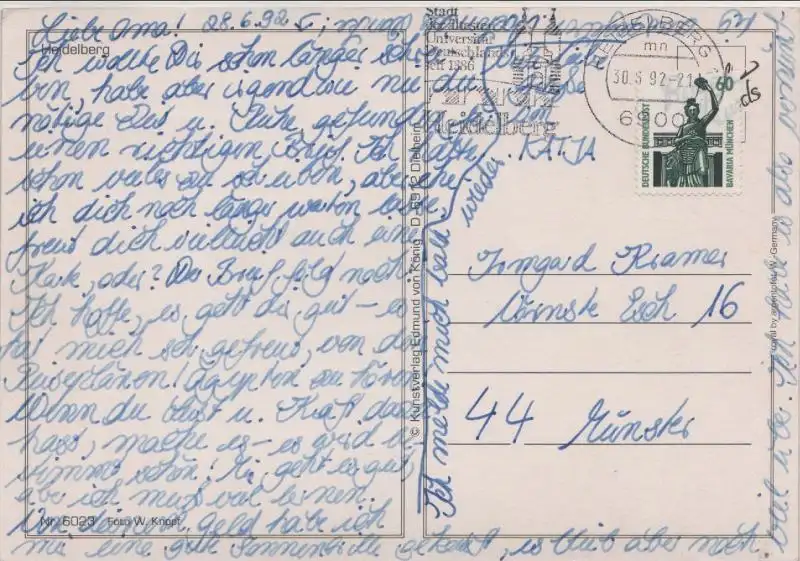 Liebe Oma! 28.6.92
Heidelberg
Ich wollte Dir schon länger schrei-
ben, habe aber irgendwie nie die
nötige Zeit u. Ruhe gefunden für
einen richtigen Brief. Ich hätte
schon vieles zu schreiben, aber ehe
ich dich noch länger warten lasse,
freut dich vielleicht auch eine
Karte, oder? Der Brief folgt noch.
Ich hoffe, es geht dir gut - es
hat mich sehr gefreut, von den
Reiseplänen Ägypten zu hören.
Wenn du Lust u. Kraft dazu
hast, mache es - es wird
bestimmt schön! Mir geht es gut,
aber ich muss viel lernen.
Von deinem Geld habe ich
mir eine gute Sonnenbrille gekauft, es blieb aber noch
viel über. Ich habe es also
Ich melde mich bald wieder.
KATJA
Nr. 6023 Foto W. Knopf
© Kunstverlag Edmund von König · D-6912 Dielheim
Stadt
der ältesten
Universität
Deutschlands
seit 1386
Heidelberg
HEIDELBERG 1
mn
30.6.92-21
6900
60
DEUTSCHE BUNDESPOST
BAVARIA MÜNCHEN
Irmgard Kramer
Esch 16
44 Münster
W. Germany